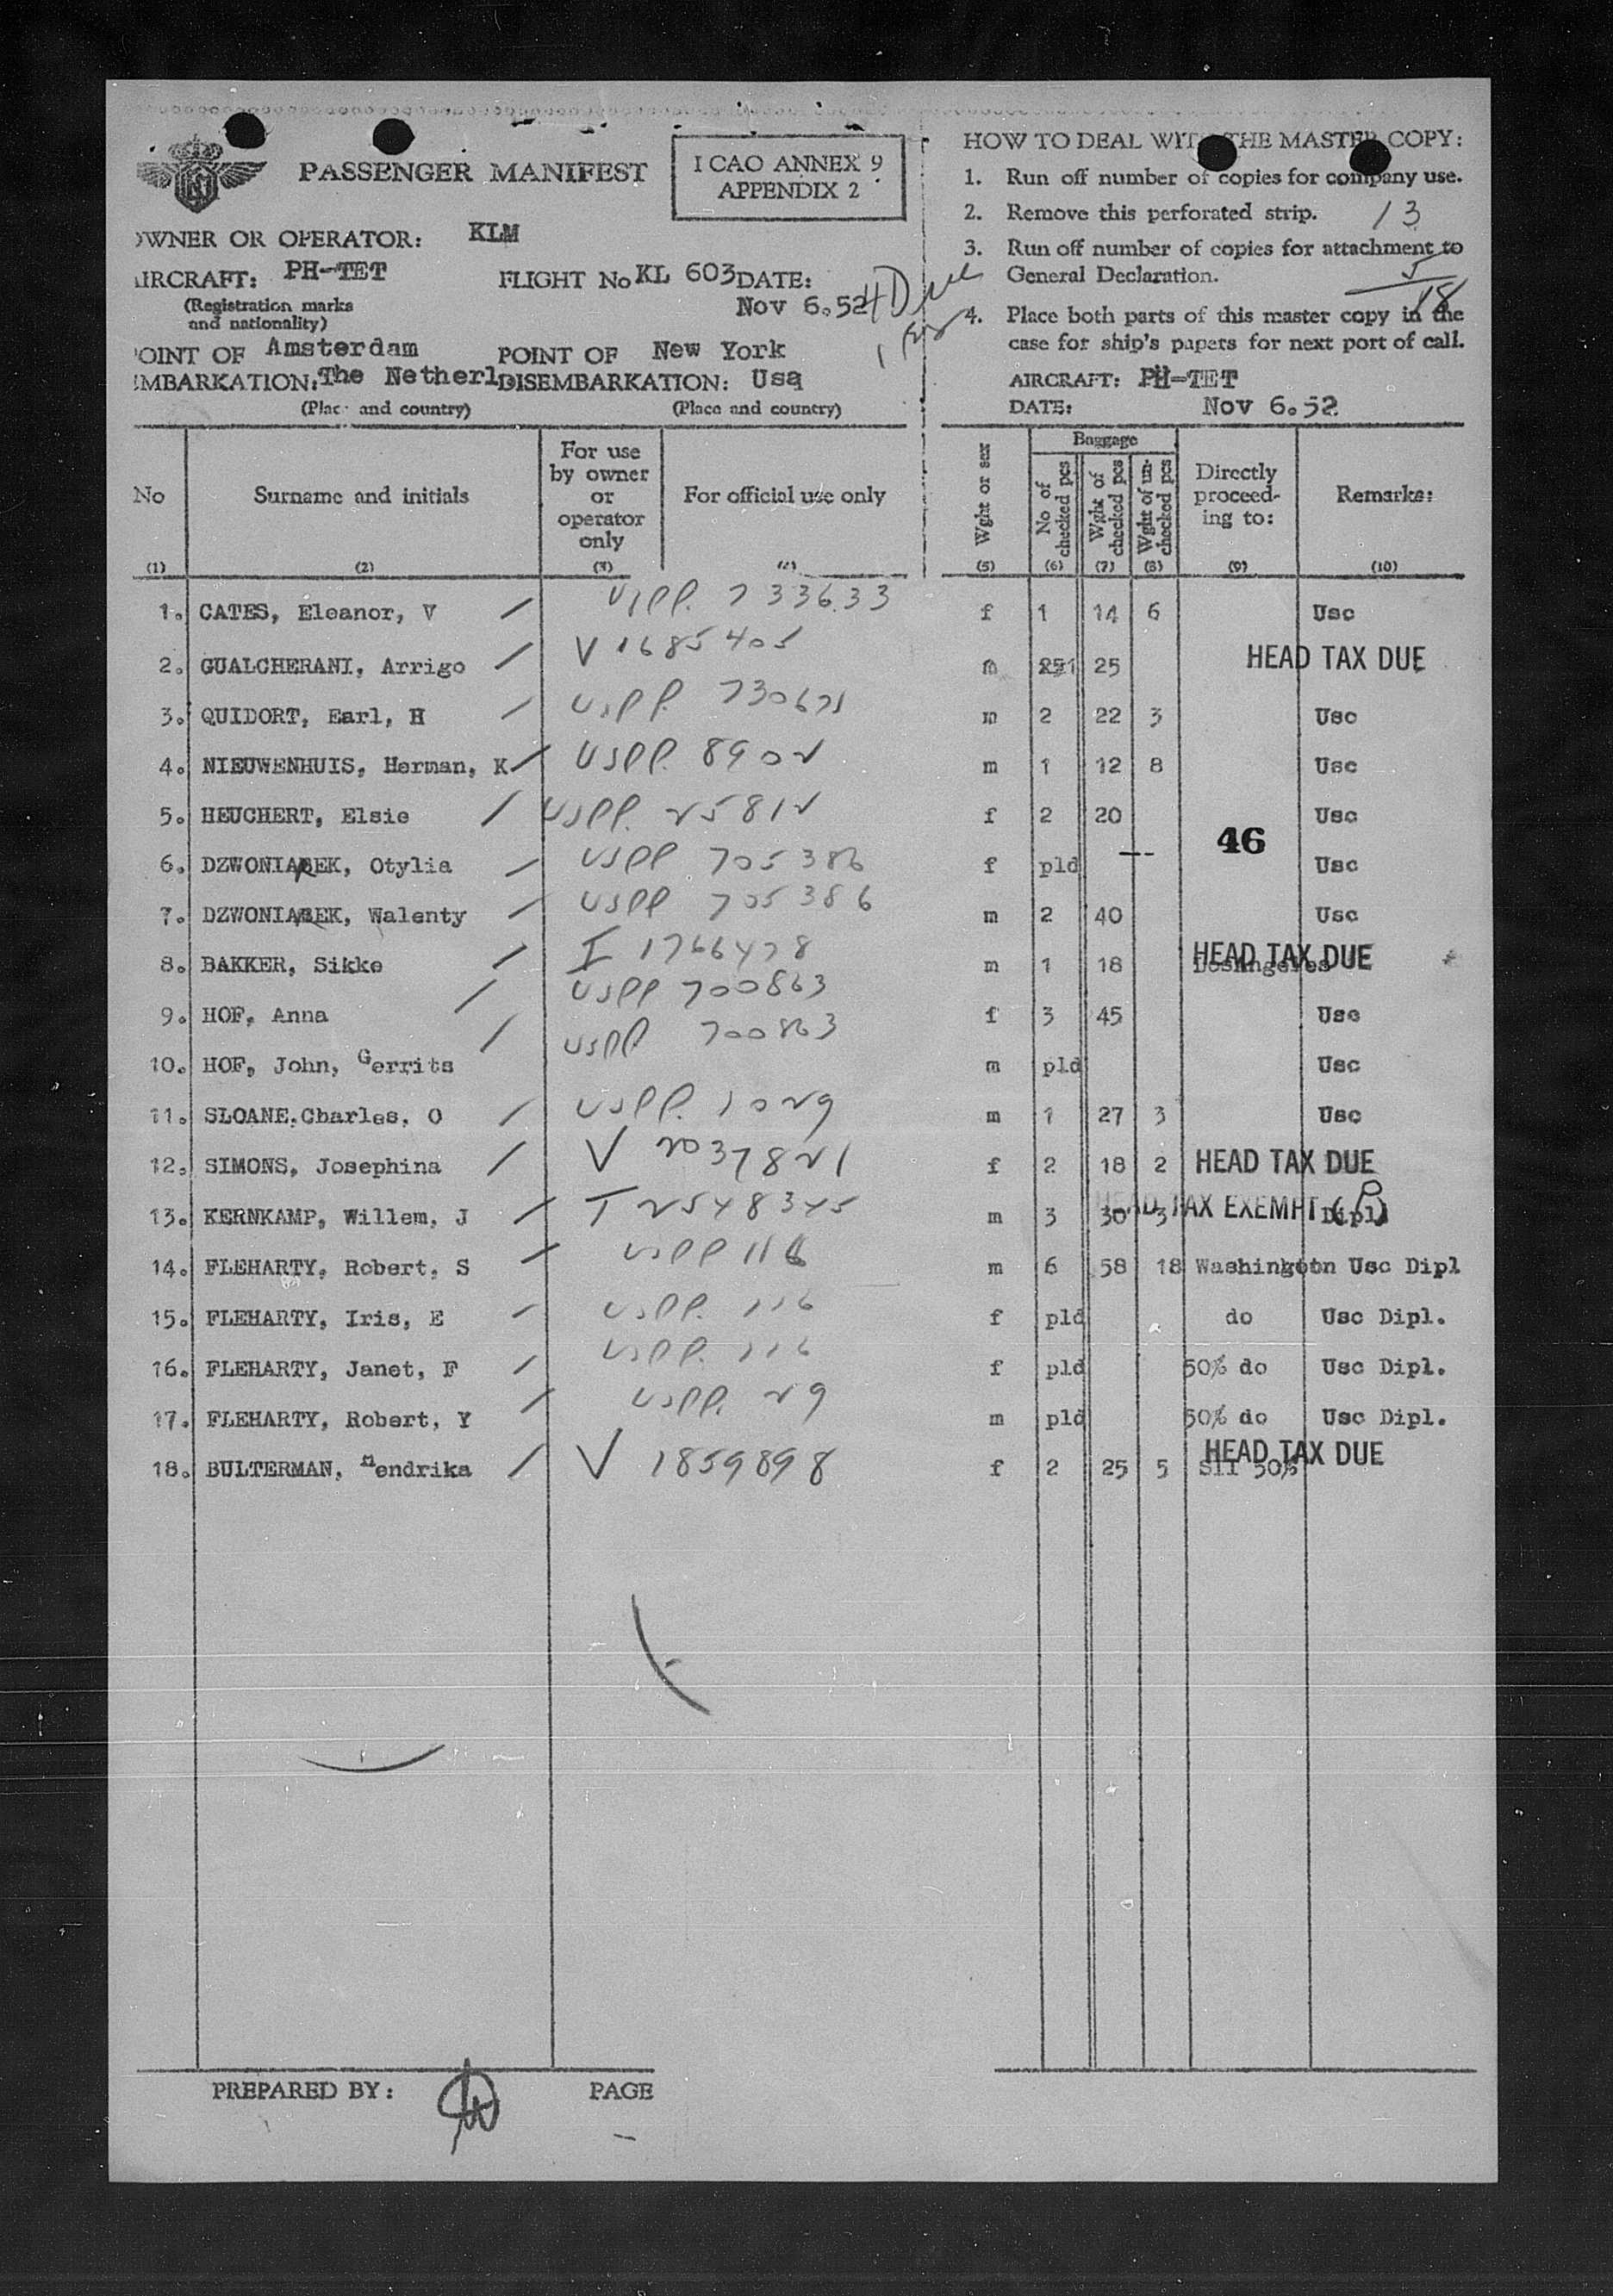 PASSENGER MANIFEST
I CAO ANNEX 9
APPENDIX 2
OWNER OR OPERATOR: KLM
AIRCRAFT: PH-TET FLIGHT No KL 603 DATE:
(Registration marks Nov 6.52 4 Due
and nationality)
POINT OF Amsterdam POINT OF New York
EMBARKATION: The Netherl DISEMBARKATION: Usa
(Place and country) (Place and country)
HOW TO DEAL WITH THE MASTER COPY:
1. Run off number of copies for company use.
2. Remove this perforated strip. 13
3. Run off number of copies for attachment to
General Declaration. 5
18
4. Place both parts of this master copy in the
case for ship's papers for next port of call.
AIRCRAFT: PH-TET
DATE: Nov 6.52
No Surname and initials For use by owner or operator only For official use only Wght or sex Baggage No of checked pcs Wght of checked pcs Wght of un-checked pcs Directly proceed-ing to: Remarks:
(1) (2) (3) (4) (5) (6) (7) (8) (9) (10)
1. CATES, Eleanor, V / uspp. 733633 f 1 14 6 Usc
2. GUALCHERANI, Arrigo / V 1685405 m 25 HEAD TAX DUE
3. QUIDORT, Earl, H / uspp. m 2 22 3 Usc
4. NIEUWENHUIS, Herman, K / uspp. 8902 m 1 12 8 Usc
5. HEUCHERT, Elsie / uspp. 25812 f 2 20 Usc
46
6. DZWONIAREK, Otylia / uspp 705386 f pld --- Usc
7. DZWONIAREK, Walenty / uspp 705386 m 2 40 Usc
8. BAKKER, Sikke / I 1766478 m 1 18 LosAngeles HEAD TAX DUE
9. HOF, Anna / uspp 700863 f 3 45 Usc
10. HOF, John, Gerrits / uspp 700863 m pld Usc
11. SLOANE.Charles, O / uspp. 1029 m 1 27 3 Usc
12. SIMONS, Josephina / V 2037821 f 2 18 2 HEAD TAX DUE
13. KERNKAMP, Willem, J / T 2548345 m 3 30 3 HEAD TAX EXEMPT (P) Dipl
14. FLEHARTY, Robert, S / uspp 116 m 6 58 18 Washington Usc Dipl
15. FLEHARTY, Iris, E / uspp. 116 f pld do Usc Dipl.
16. FLEHARTY, Janet, F / uspp. 116 f pld 50% do Usc Dipl.
17. FLEHARTY, Robert, Y / uspp. 29 m pld 50% do Usc Dipl.
18. BULTERMAN, Hendrika / V 1859898 f 2 25 5 50% HEAD TAX DUE
PREPARED BY: PAGE